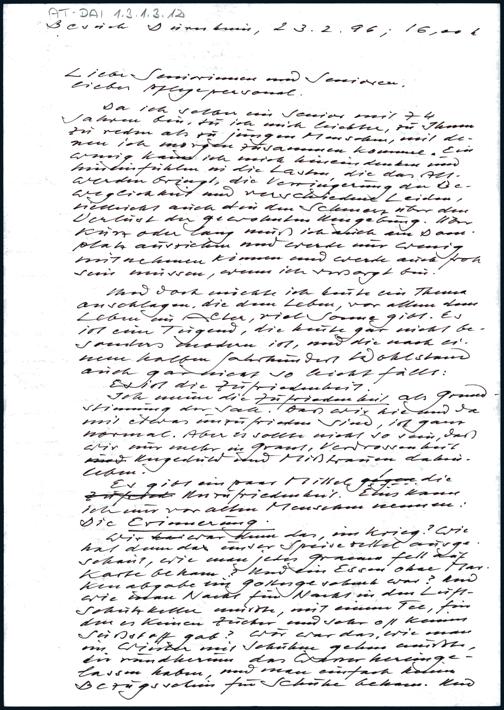 AT-DAI 1.3.1.3.12
Besuch Dürnkrun, 23.2.96, 16,00 h
Liebe Seniorinnen und Senioren.
Liebes Pflegepersonal.
Da ich selber ein Senior mit 74
Jahren bin, tu ich mich leichter, zu Ihnen
zu reden als zu jungen Menschen, mit de-
nen ich morgen zusammen komme. Ein
wenig kann ich mich hineindenken und
hineinfühlen in die Lasten, die das Alt-
werden bringt, die Verringerung der Be-
weglichkeit und verschiedene Leiden,
vielleicht auch in den Schmerz über den
Verlust der gewohnten Umgebung. Über
kurz oder lang muß ich auch am Dom-
platz ausziehen und werde nur wenig
mitnehmen können und werde auch froh
sein müssen, wenn ich versorgt bin.
Und doch möchte ich heute ein Thema
anschlagen, die dem Leben, vor allem dem
Leben im Alter, viel Sonne gibt. Es
ist eine Tugend, die heute gar nicht be-
sonders modern ist, und die nach ei-
nem halben Jahrhundert Wohlstand
auch gar nicht so leicht fällt:
Es ist die Zufriedenheit.
Ich meine die Zufriedenheit als Grund-
stimmung der Seele. Daß wir hie und da
mit etwas unzufrieden sind, ist ganz
normal. Aber es sollte nicht so sein, daß
wir nur mehr in Grant, Verdrossenheit
und Ungeduld und Mißtrauen dahin-
leben.
Es gibt ein paar Mittel gegen die
Unzufriedenheit. Eines kann
ich nur vor alten Menschen nennen:
Die Erinnerung.
Wie war denn das, im Krieg? Wie
hat denn da unser Speisezettel ausge-
schaut, wie man jedes Gramm Fett auf
Karte bekam? Und ein Essen ohne Mar-
kenabgabe ein Gottesgeschenk war? Und
wie man Nacht für Nacht in den Luft-
schutzkeller mußte, mit einem Tee, für
den es keinen Zucker und sehr oft keinen
Süßstoff gab? Wie war das, wie man
im Winter mit Schuhen gehen mußte,
die rundherum das Wasser hereinge-
lassen haben, und man einfach keinen
Bezugsschein für Schuhe bekam. Und